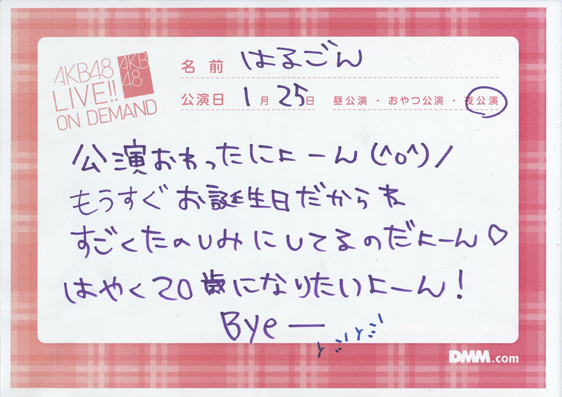 AKB48
LIVE!!
ON DEMAND
AKB
48
名前 はるごん
公演日 1月25日 昼公演・おやつ公演・夜公演
公演おわったにょーん(^o^)/
もうすぐお誕生日だからね
すごくたのしみにしてるのだよーん♡
はやく20歳になりたいよーん!
Bye—
DMM.com